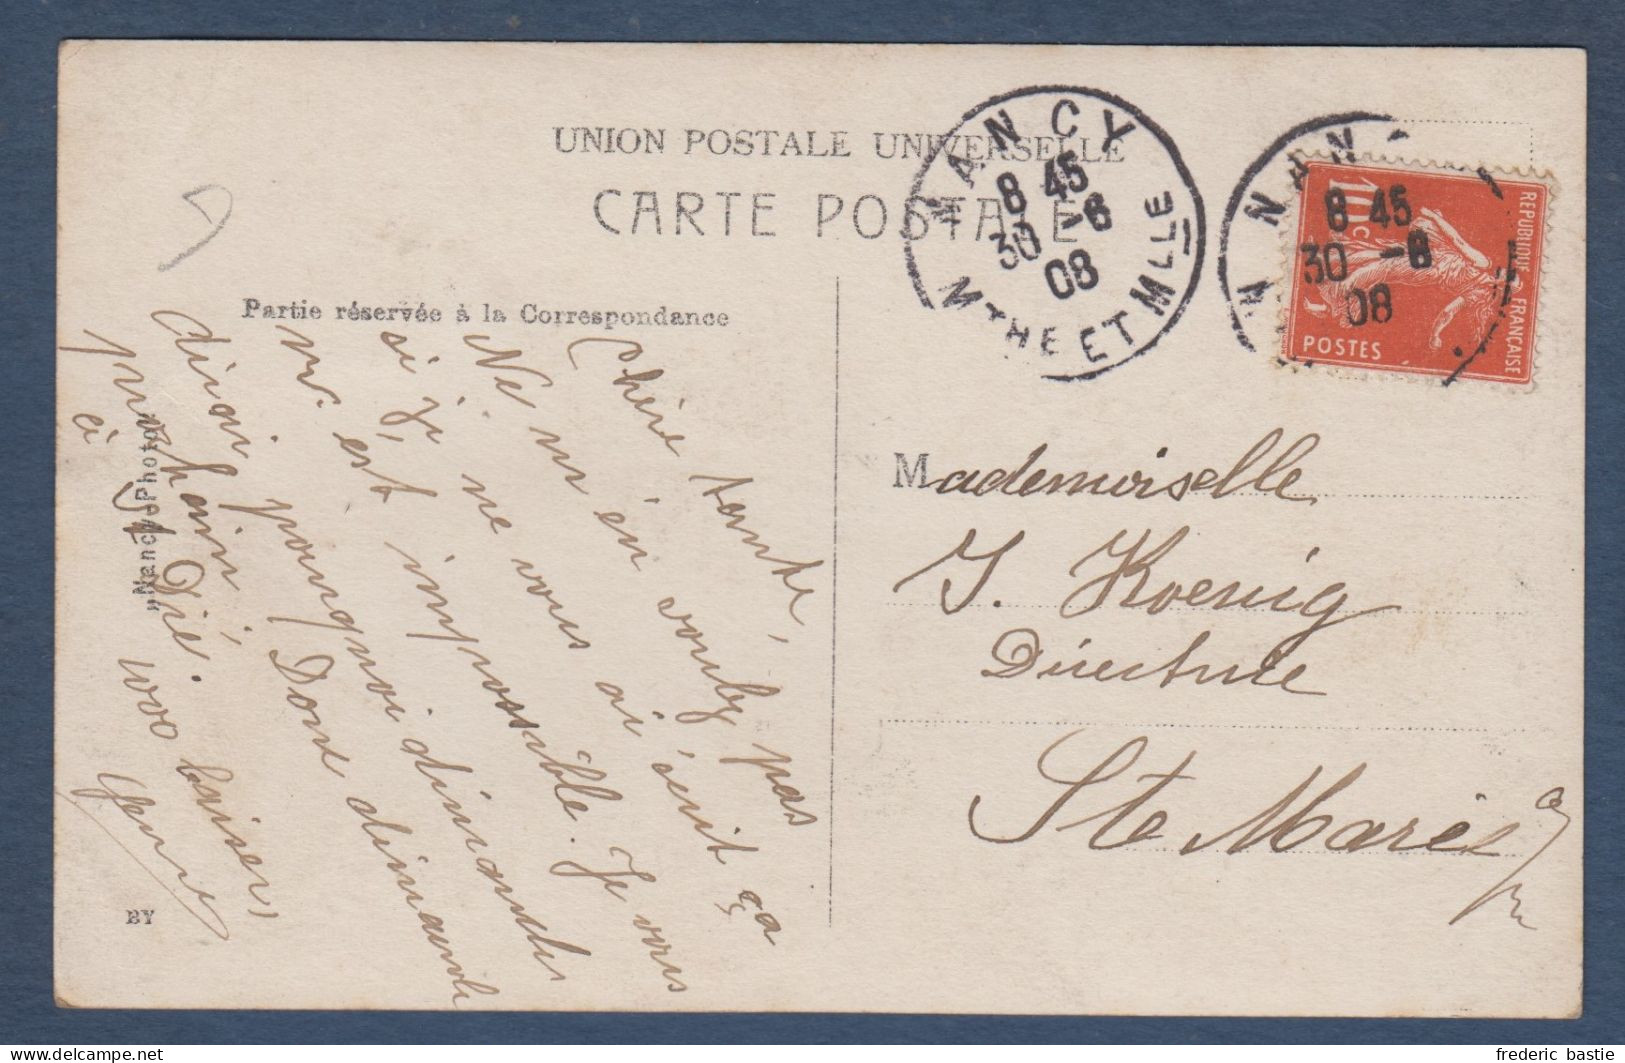 UNION POSTALE UNIVERSELLE
CARTE POSTALE
Partie réservée à la Correspondance
NANCY
8 45
30 -6
08
MTHE ET MLLE
NAN
8 45
30 -6
08
REPUBLIQUE FRANÇAISE
10c
POSTES
Chère tante,
Ne m'en voulez pas
si je ne vous ai écrit ça
m'est impossible. Je vous
dirai pourquoi dimanche
prochain. Donc dimanche
à St Dié.
1000 baisers
Mademoiselle
J. Koenig
Directrice
Ste Marie a/
"Nancy-Photo"
BY
frederic bastie
delcampe.net